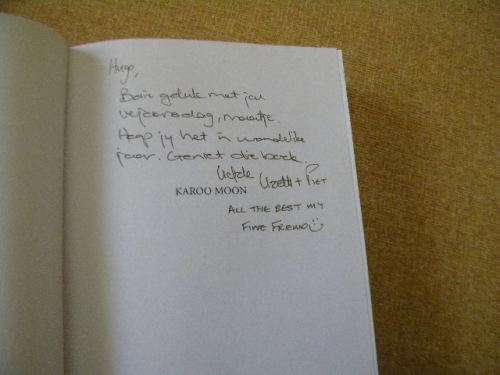 Hugo,
Baie geluk met jou
verjaarsdag, maatjie.
Hoop jy het 'n wonderlike
jaar. Geniet die boek.
Liefde
Lizette + Piet
KAROO MOON
ALL THE BEST MY
FINE FRIEND